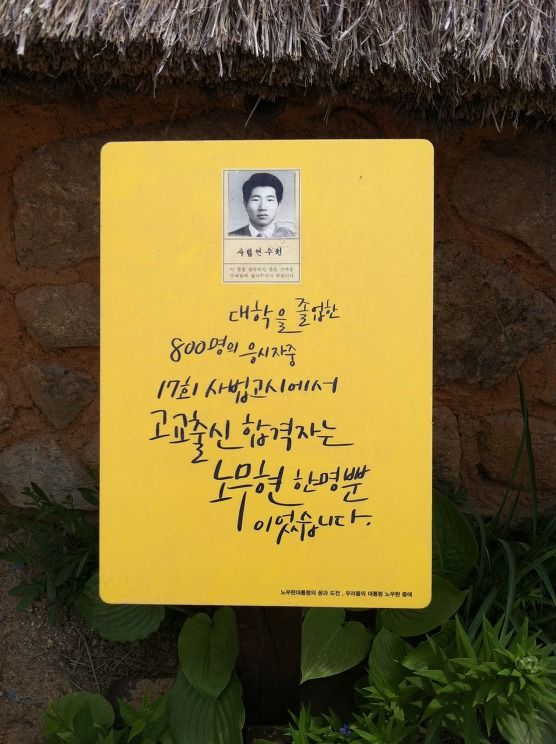 사법연수원
대학을 졸업한
800명의 응시자중
17회 사법고시에서
고교출신 합격자는
노무현 한명뿐
이었습니다.
노무현대통령의 꿈과 도전, 우리들의 대통령 노무현 중에